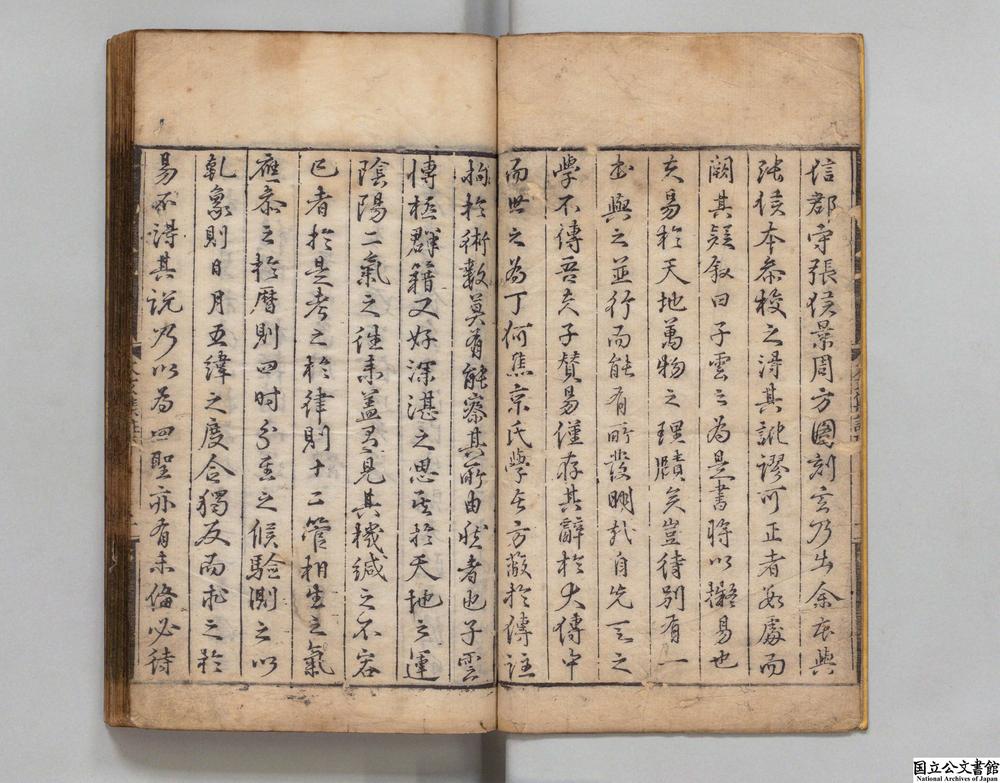 信郡守張侯景周方圖刻玄乃出余家與
張侯本叅挍之得其訛謬可正者數處而
闕其疑叙曰子雲之為是書將以擬易也
夫易於天地萬物之理賾矣豈待别有一
書與之並行而能有所發明哉自先天之
學不傳吾夫子賛易僅存其辭於大傳中
而世之為丁何焦京氏學者方蔽於傳註
拘於術數莫有能察其所由然者也子雲
博極群籍又好深湛之思其於天地之運
陰陽二氣之往来盖有見其機緘之不容
已者於是考之於律則十二管相生之氣
應叅之於曆則四时分至之候驗測之以
乾象則日月五緯之度合獨反而求之於
易不得其說乃以為四聖亦有未備必待
国立公文書館
National Archives of Japan